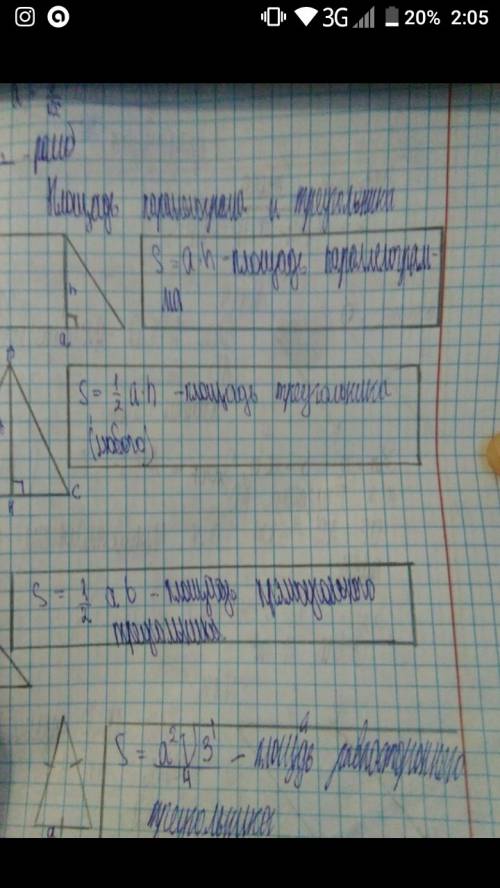 3G 20% 2:05
ромб
Площадь параллелограма и треугольника
S = a·h - площадь параллелограм-
ма
h
a
S = 1/2 a·h - площадь треугольника
(любого)
C
S = 1/2 a b - площадь прямоугольного
треугольника
S = a²√3/4 - площадь равностороннего
треугольника
a